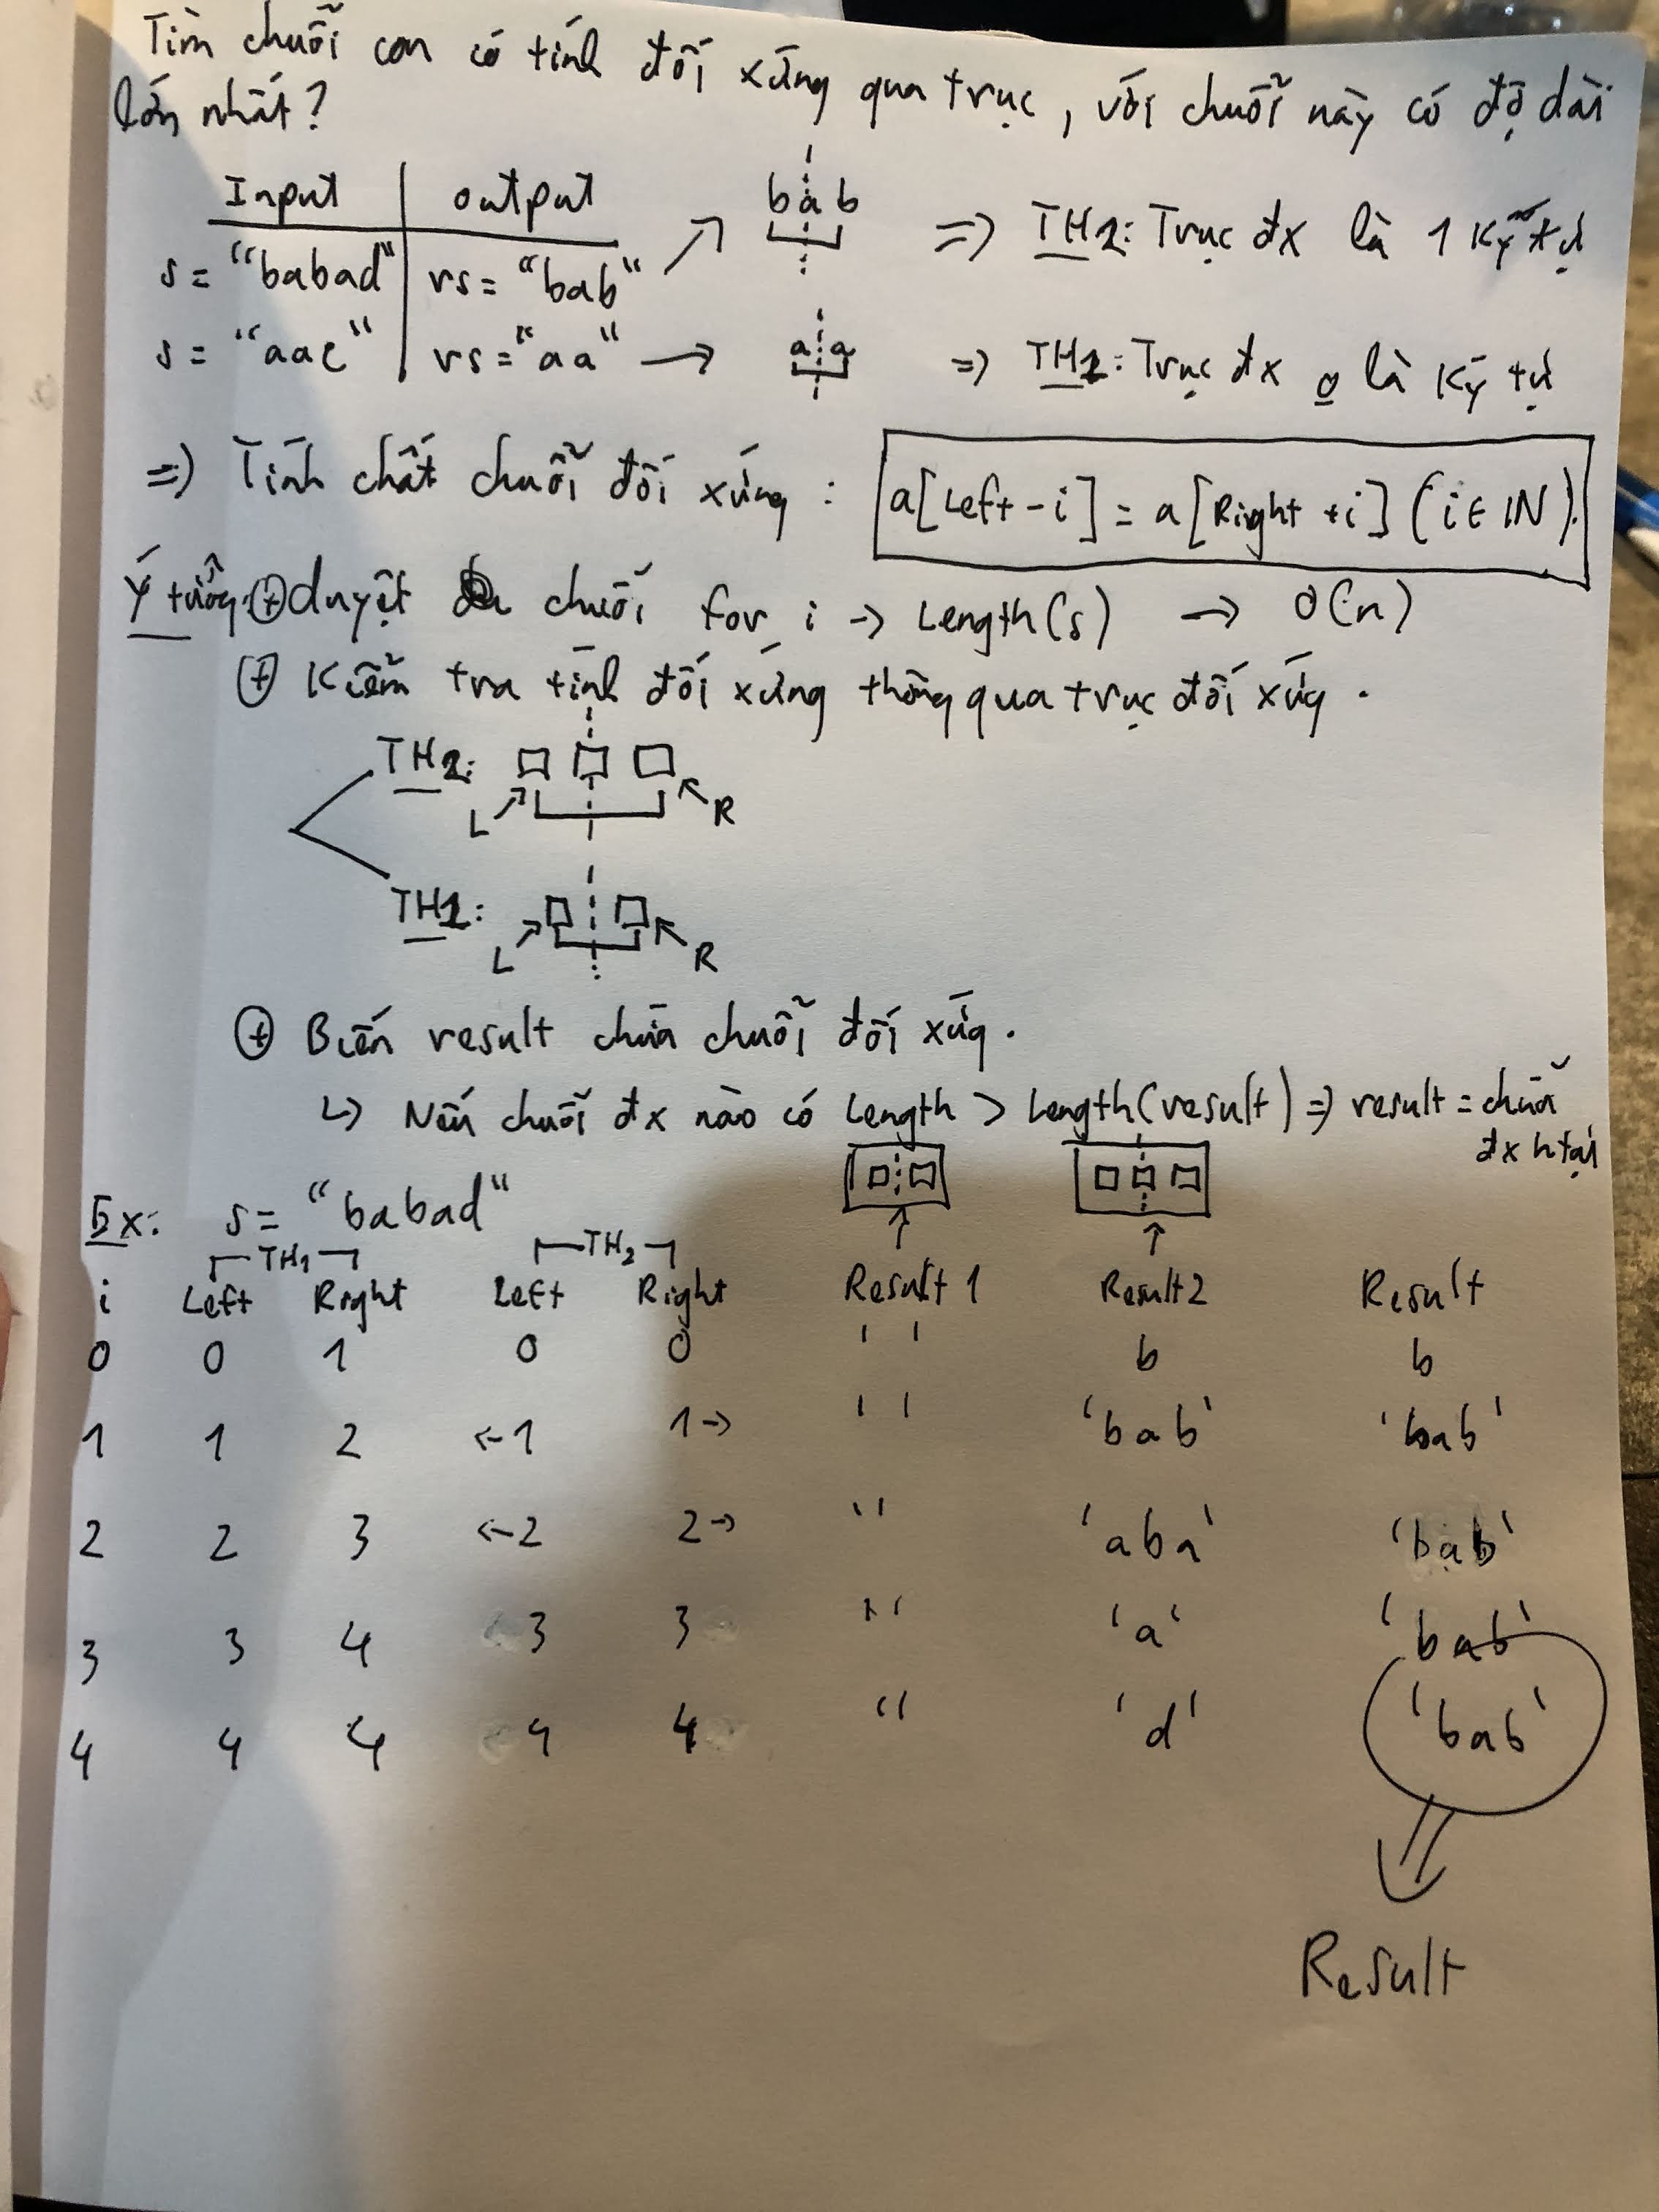 Tìm chuỗi con có tính đối xứng qua trục, với chuỗi này có độ dài
lớn nhất?
Input | output
s = "babad" | rs = "bab" ↗ b a b => TH2: Trục đx là 1 ký tự
s = "aac" | rs = "aa" → a a => TH1: Trục đx o là ký tự
=> Tính chất chuỗi đối xứng : a[Left - i] = a[Right + i] (i ∈ IN).
Ý tưởng: ⊕ duyệt chuỗi for i -> Length(s) → O(n)
⊕ Kiểm tra tính đối xứng thông qua trục đối xứng.
TH2: L R
TH1: L R
⊕ Biến result chứa chuỗi đối xứng.
↳ Nếu chuỗi đx nào có Length > Length(result) => result = chuỗi
đx h tại
Ex: s = "babad"
TH1 TH2
i Left Right Left Right Result 1 Result 2 Result
0 0 1 0 0 ' ' b b
1 1 2 ←1 1→ ' ' 'bab' 'bab'
2 2 3 ←2 2→ '' 'aba' 'bab'
3 3 4 3 3 '' 'a' 'bab'
4 4 4 4 4 '' 'd' 'bab'
Result